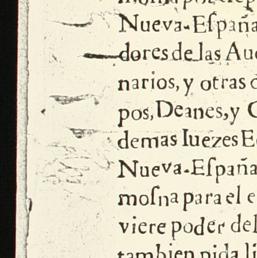 Nueva-Eſpaña
dores de las Au
narios, y otras d
pos, Deanes, y C
demas Iuezes E
Nueva-Eſpaña
moſna para el e
viere poder del
tambien pida li